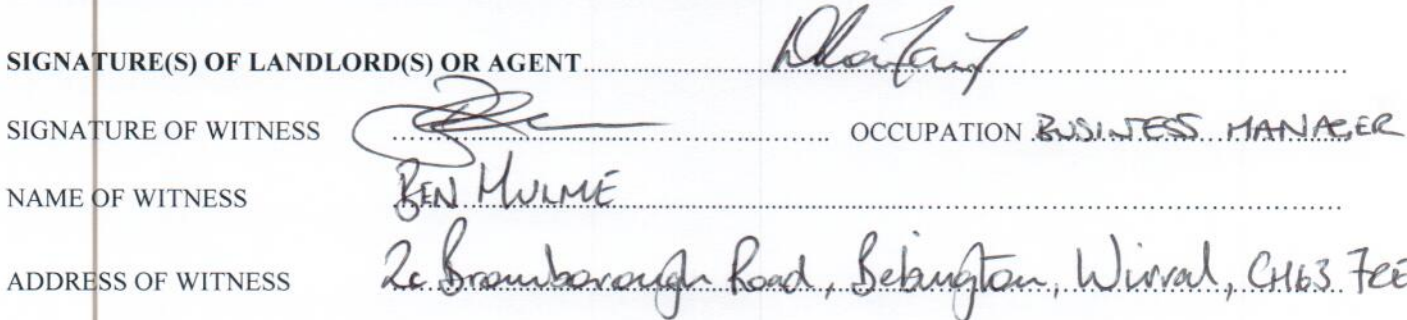 SIGNATURE(S) OF LANDLORD(S) OR AGENT
SIGNATURE OF WITNESS OCCUPATION BUSINESS MANAGER
NAME OF WITNESS BEN HULME
ADDRESS OF WITNESS 2c Bromborough Road, Bebington, Wirral, CH63 7RE